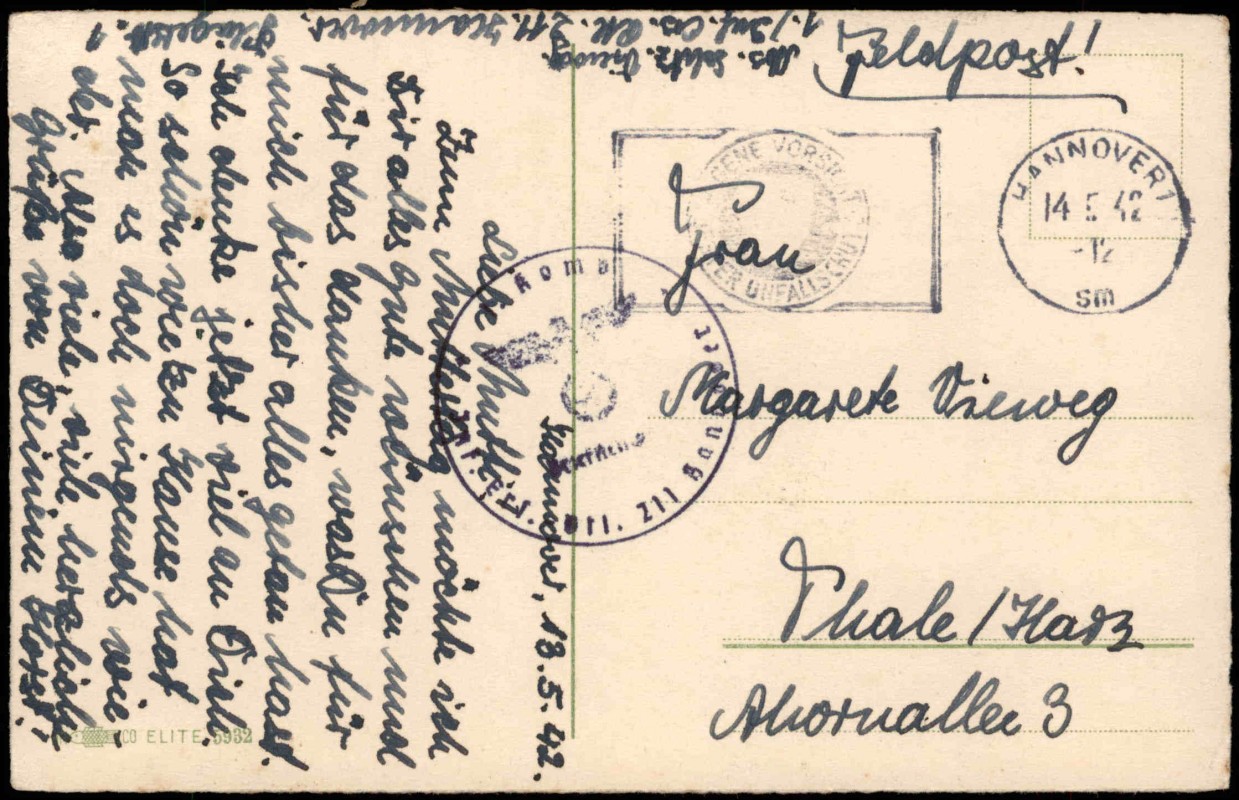 Feldpost!
Abs. Schtz. Vieweg
1./Inf. Ers. Btl. 211. Hannover.
HANNOVER 1
14.5.42
-12
sm
UNFALLSCHUTZ
Frau
Margarete Vieweg
Thale/Harz
Ahornallee 3
Hannover, 13.5.42.
Liebe Mutti,
Zum Muttertag möchte ich
Dir alles Gute wünschen und
für das danken, was Du für
mich bisher alles getan hast.
Ich denke jetzt viel an Dich.
So schön wie zu Hause hat
man es doch nirgends wie-
der. Also viele, viele herzliche
Grüße von Deinem Horst.
Komp
Inf. Ers. Btl. 211 Hannover
Briefstempel
CO ELITE 5932